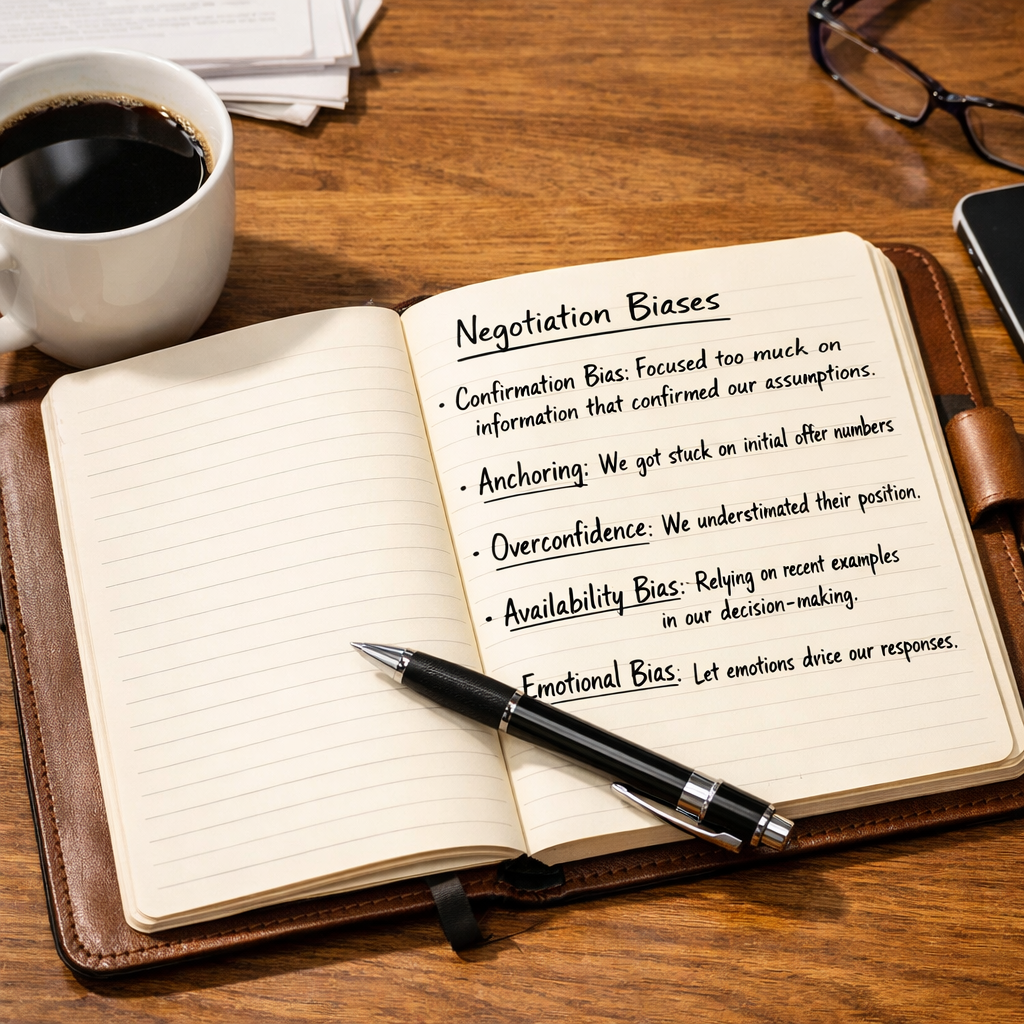 Negotiation Biases
• Confirmation Bias: Focused too much on
information that confirmed our assumptions.
• Anchoring: We got stuck on initial offer numbers
• Overconfidence: We understimated their position.
• Availability Bias: Relying on recent examples
in our decision-making.
Emotional Bias: Let emotions dvice our responses.